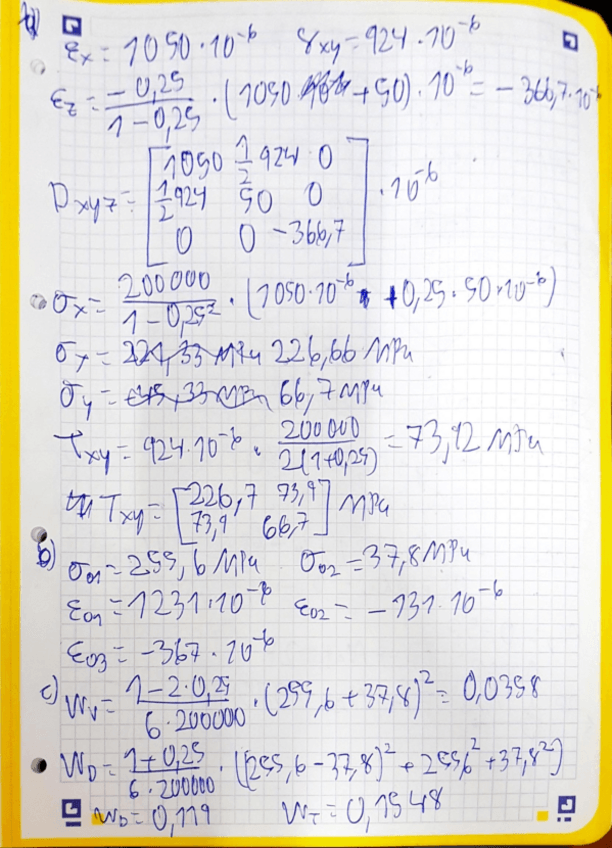 a)
εx = 1050·10⁻⁶ γxy = 924·10⁻⁶
εz = -0,25/(1-0,25) · (1050 + 50)·10⁻⁶ = -366,7·10⁻⁶
Dxyz = [1050 1/2 924 0
1/2 924 50 0
0 0 -366,7] ·10⁻⁶
σx = 200000/(1-0,25²) · (1050·10⁻⁶ + 0,25·50·10⁻⁶)
σx = 226,66 MPa
σy = 66,7 MPa
τxy = 924·10⁻⁶ · 200000/(2(1+0,25)) = 73,92 MPa
Txy = [226,7 73,9
73,9 66,7] MPa
b)
σ01 = 255,6 MPa σ02 = 37,8 MPa
ε01 = 1231·10⁻⁶ ε02 = -131·10⁻⁶
ε03 = -367·10⁻⁶
c) Wv = (1-2·0,25)/(6·200000) · (255,6 + 37,8)² = 0,0358
WD = (1+0,25)/(6·200000) · ((255,6 - 37,8)² + 255,6² + 37,8²)
WD = 0,119 WT = 0,1548